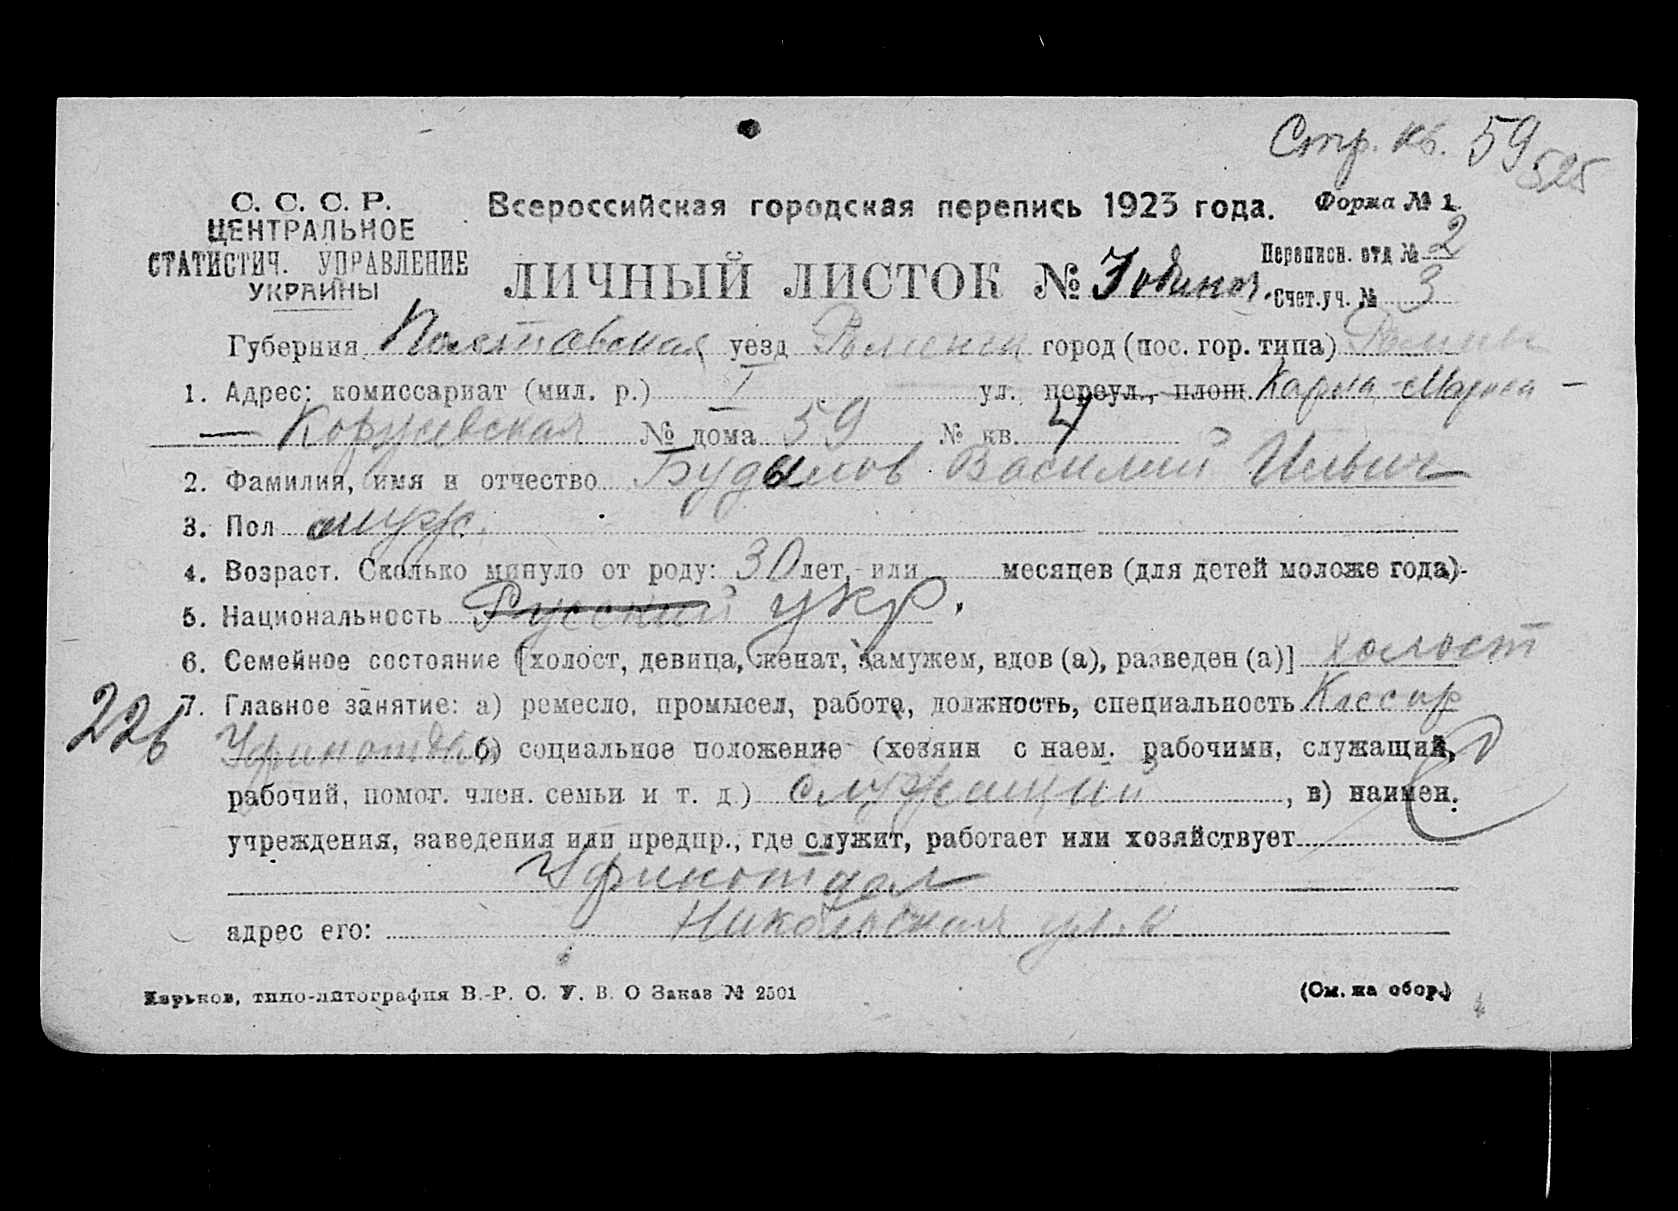 Стр. кв. 59
525
С. С. С. Р.
ЦЕНТРАЛЬНОЕ
СТАТИСТИЧ. УПРАВЛЕНИЕ
УКРАИНЫ
Всероссийская городская перепись 1923 года.
Форма № 1.
ЛИЧНЫЙ ЛИСТОК №
Переписн. отд № 2
Счет. уч. № 3
Губерния Полтавская уезд Роменск город (пос. гор. типа) Ромны
1. Адрес: комиссариат (мил. р.) I ул. переул., площ. Карла-Маркса -
- Коржевская № дома 59 № кв. 4
2. Фамилия, имя и отчество Будылов Василий Ильич
3. Пол муж.
4. Возраст. Сколько минуло от роду: 30 лет, или месяцев (для детей моложе года).
5. Национальность Русский укр.
6. Семейное состояние [холост, девица, женат, замужем, вдов (а), разведен (а)] холост
226
7. Главное занятие: а) ремесло, промысел, работа, должность, специальность Кассир
Уфинотдел б) социальное положение (хозяин с наем. рабочими, служащий,
рабочий, помог. член. семьи и т. д.) служащий, в) наимен.
учреждения, заведения или предпр., где служит, работает или хозяйствует
Уфинотдел
адрес его: Никольская ул.
Харьков, типо-литография В.-Р. О. У. В. О Заказ № 2501
(См. на обор.)